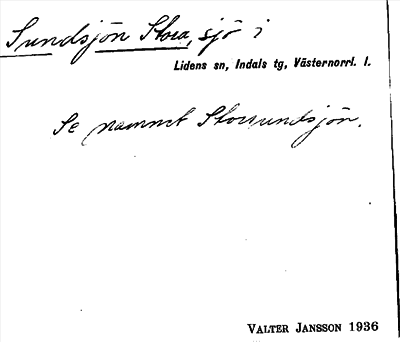 Sundsjön Stora, sjö i
Lidens sn, Indals tg, Västernorrl. l.
Se namnet Storsundsjön.
VALTER JANSSON 1936